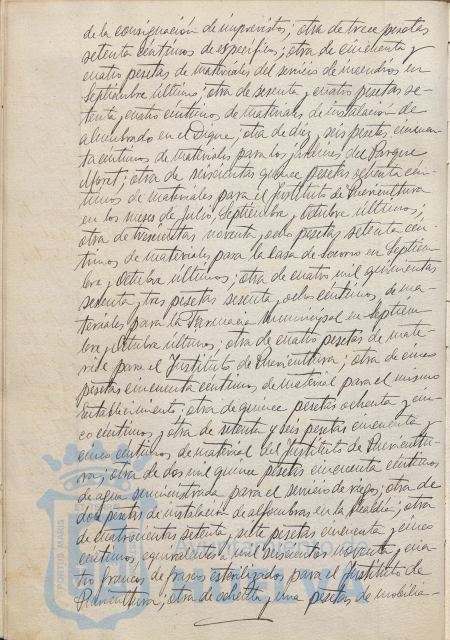 de la consignación de imprevistos; otra de trece pesetas
setenta céntimos de específicos; otra de cincuenta y
cuatro pesetas de materiales del servicio de incendios en
Septiembre último; otra de sesenta y cuatro pesetas se-
tenta y cuatro céntimos de materiales de instalación de
alumbrado en el dique; otra de diez y seis pesetas cincuen-
ta céntimos de materiales para los jardines del Parque
Moret; otra de seiscientas quince pesetas setenta cén-
timos de materiales para el Instituto de Puericultura
en los meses de Julio, Septiembre y Octubre últimos;
otra de trescientas noventa y ocho pesetas setenta cén-
timos de materiales para la Casa de socorro en Septiem-
bre y Octubre últimos; otra de cuatro mil quinientas
sesenta y tres pesetas sesenta y ocho céntimos, de ma-
teriales para la Farmacia Municipal en Septiem-
bre y Octubre últimos; otra de cuatro pesetas de mate-
rial para el Instituto de Puericultura; otra de cinco
pesetas cincuenta céntimos de material para el mismo
establecimiento; otra de quince pesetas ochenta y cin-
co céntimos y otra de setenta y seis pesetas cincuenta y
cinco céntimos de material del Instituto de Puericultu-
ra; otra de dos mil quince pesetas cincuenta céntimos
de agua suministrada para el servicio de riegos; otra de
dos pesetas de instalación de alfombras en la Alcaldía; otra
de cuatrocientas setenta y siete pesetas cincuenta y cinco
céntimos, equivalentes a mil seiscientos noventa y cua-
tro francos de frascos esterilizados para el Instituto de
Puericultura; otra de ochenta y una pesetas de mobilia-
PORTUS MARIS